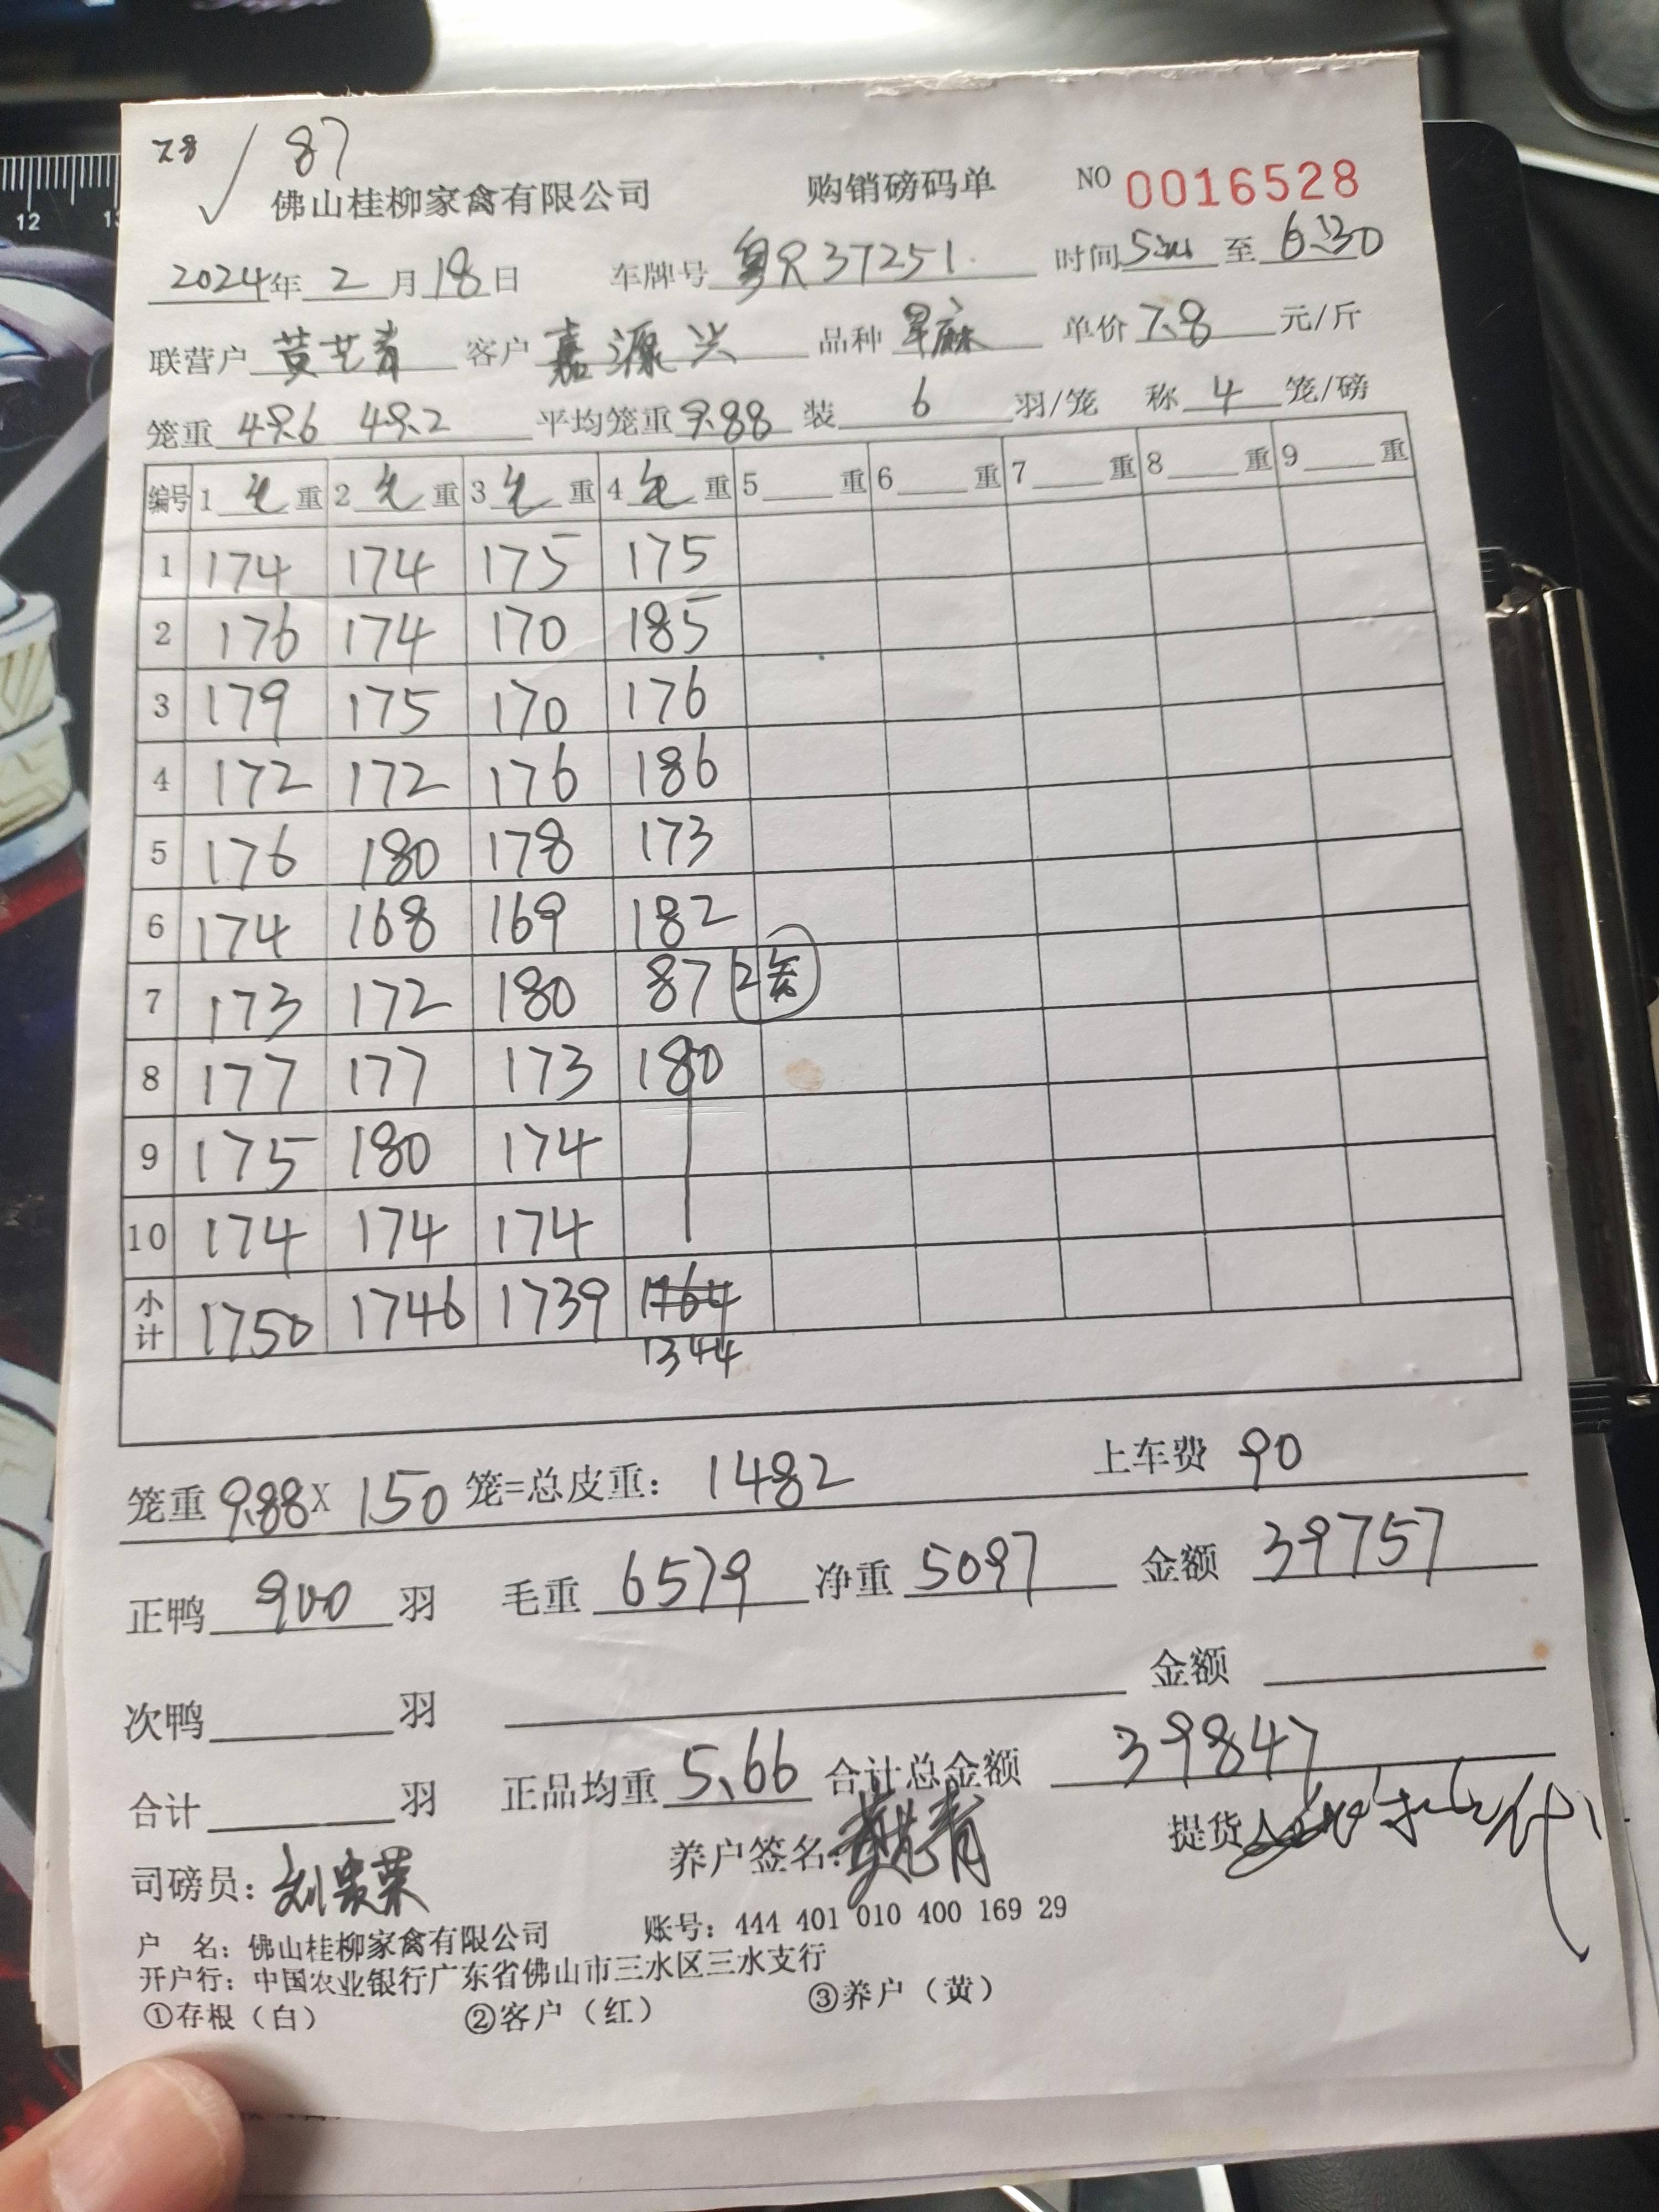 7.8 √ 87
佛山桂柳家禽有限公司 购销磅码单 NO 0016528
2024年 2 月 18 日 车牌号 粤R37251 时间 至 6:30
联营户 黄艺青 客户 嘉源兴 品种 早麻 单价 7.8 元/斤
笼重 49.6 49.2 平均笼重 9.88 装 6 羽/笼 称 4 笼/磅
编号 1 毛 重 2 毛 重 3 毛 重 4 毛 重 5 重 6 重 7 重 8 重 9 重
1 174 174 175 175
2 176 174 170 185
3 179 175 170 176
4 172 172 176 186
5 176 180 178 173
6 174 168 169 182
7 173 172 180 87 2笼
8 177 177 173 180
9 175 180 174
10 174 174 174
小计 1750 1746 1739 1764
1344
笼重 9.88 X 150 笼=总皮重: 1482 上车费 90
正鸭 900 羽 毛重 6579 净重 5097 金额 39757
次鸭 羽 金额
合计 羽 正品均重 5.66 合计总金额 39847
司磅员: 刘贵荣 养户签名: 黄艺青 提货人
户 名: 佛山桂柳家禽有限公司 账号: 444 401 010 400 169 29
开户行: 中国农业银行广东省佛山市三水区三水支行
①存根（白） ②客户（红） ③养户（黄）
12